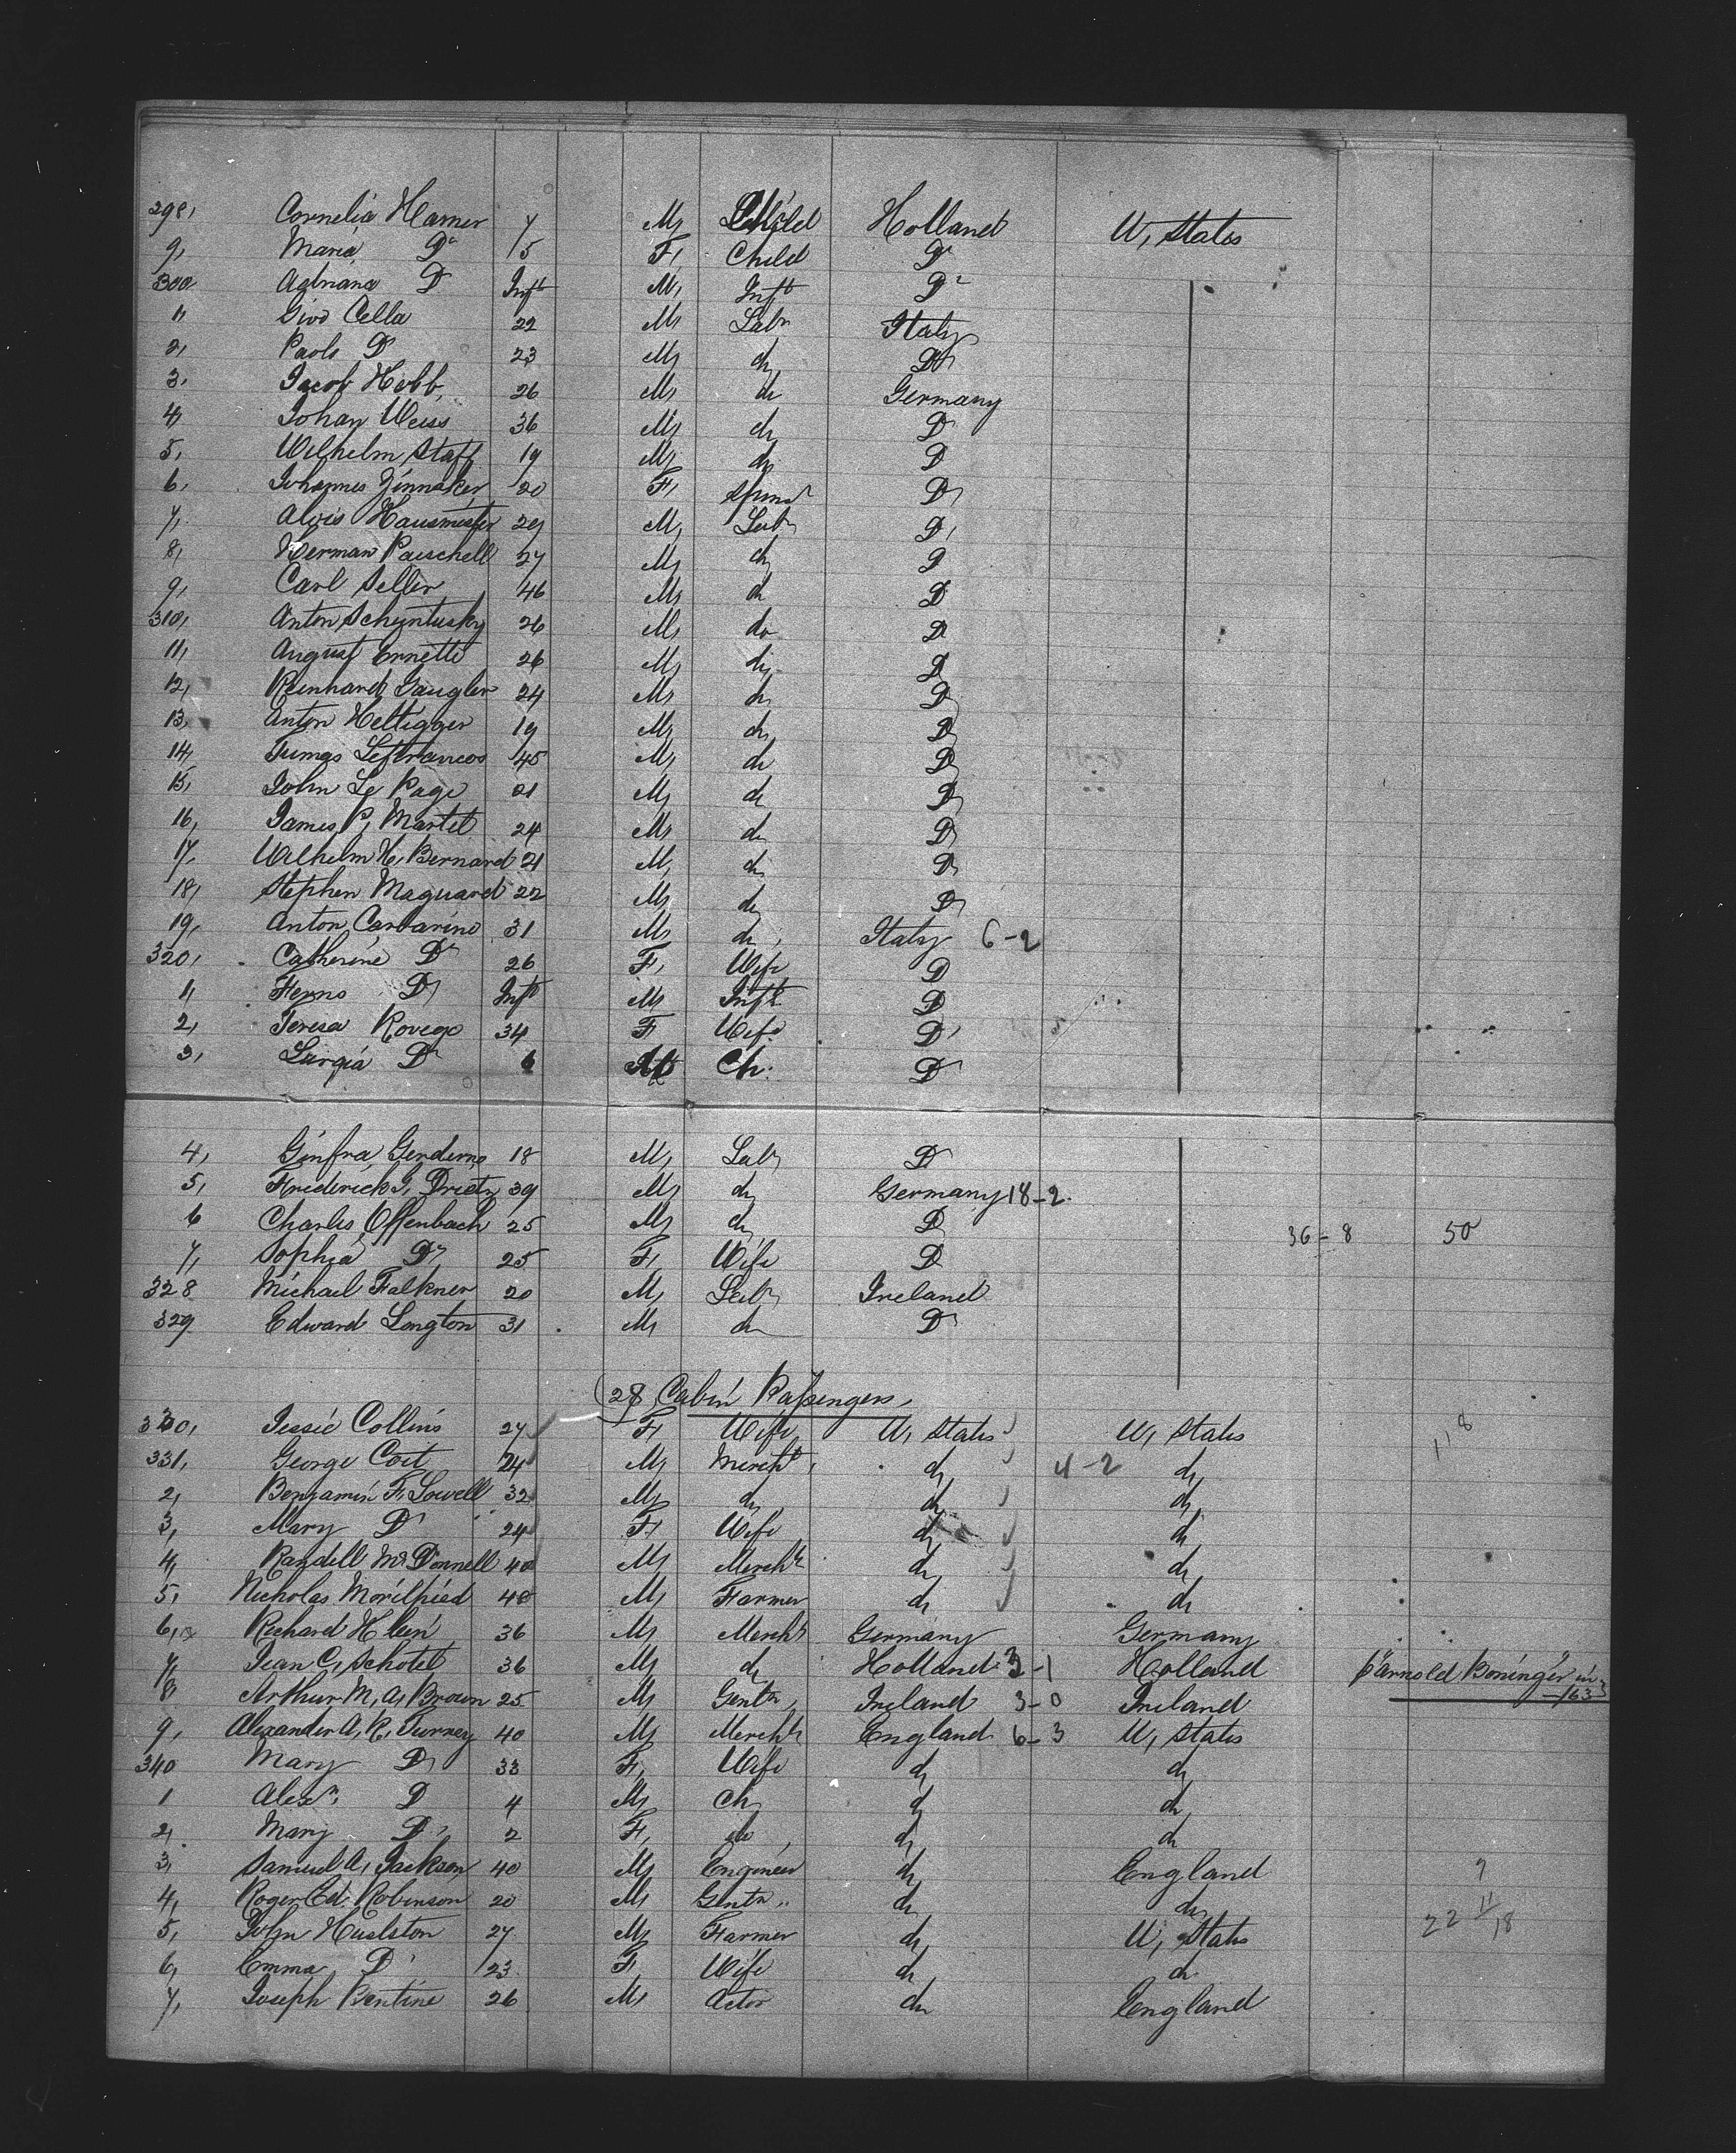 298, Cornelia Hamer 7 M, Child Holland U, States
9, Maria Do 5 F, Child Do
300 Adriana Do Inft M, Inft Do
1, Giov Cella 22 M, Labr Italy
2, Paolo Do 23 M, do Do
3, Jacob Hobb, 26 M, do Germany
4, Johan Weiss 36 M, do Do
5, Wilhelm Staff 19 M, do Do
6, Johannes Zinnaker 20 F, Spinsr Do
7, Alois Hausmeister 29 M, Labr Do
8, Herman Paeschell 27 M, do Do
9, Carl Seller 46 M, do Do
310, Anton 26 M, do Do
11, August Ernette 26 M, do Do
12, Reinhard Gaugler 24 M, do Do
13, Anton Heltigger 19 M, do Do
14, Lefrancois 45 M, do Do
15, John Le Page 21 M, do Do
16, James P, Martel 24 M, do Do
17, Wilhelm H, Bernard 21 M, do Do
18, Stephen Maguard 22 M, do Do
19, Anton Carbarino 31 M, do, Italy 6-2
320, Catherine Do 26 F, Wife Do
1, Do Inft M, Inft Do
2, Teresa Rovego 34 F, Wife Do
3, Do 6 Ch. Do
4, Ginfra 18 M, Labr Do
5, Frederick G, Drietz 39 M, do Germany 18-2
6 Charles Offenbach 25 M, do Do 36-8 50
7, Sophia Do 25 F, Wife Do
328 Michael Falkner 20 M, Labr Ireland
329 Edward Longton 31 M, do Do
(28 Cabin Passengers,
330, Jessie Collins 27 F, Wife U, States U, States 118
331, George Coit 24 M, Mercht, do 4-2 do
2, Benjamin F, Lowell 32 M, do do do
3, Mary Do 24 F, Wife do do
4, Randell McDonnell 40 M, Mercht do do
5, Nicholas Morilhied 48 M, Farmer do do
6, Richard Klein 36 M, Mercht Germany Germany
7, Jean C, Schotel 36 M, do Holland 3-1 Holland Arnold Boninger in
8 Arthur M, A, Brown 25 M, Gentn, Ireland 3-0 Ireland 163
9, Alexander A, K, Turney 40 M, Mercht England 6-3 U, States
340 Mary Do 33 F, Wife do do
1 Alexr, D 4 M, Ch, do do
2, Mary D, 2 F, do, do do
3, Samuel A, Jackson, 40 M, Engineer do England 7
4, Roger Ed. Robinson 20 M, Gentn do do 11
5, John Huelston 27 M, Farmer do U, States 22 18
6, Emma Do 23 F, Wife do do
7, Joseph Bentine 26 M, Actor do England